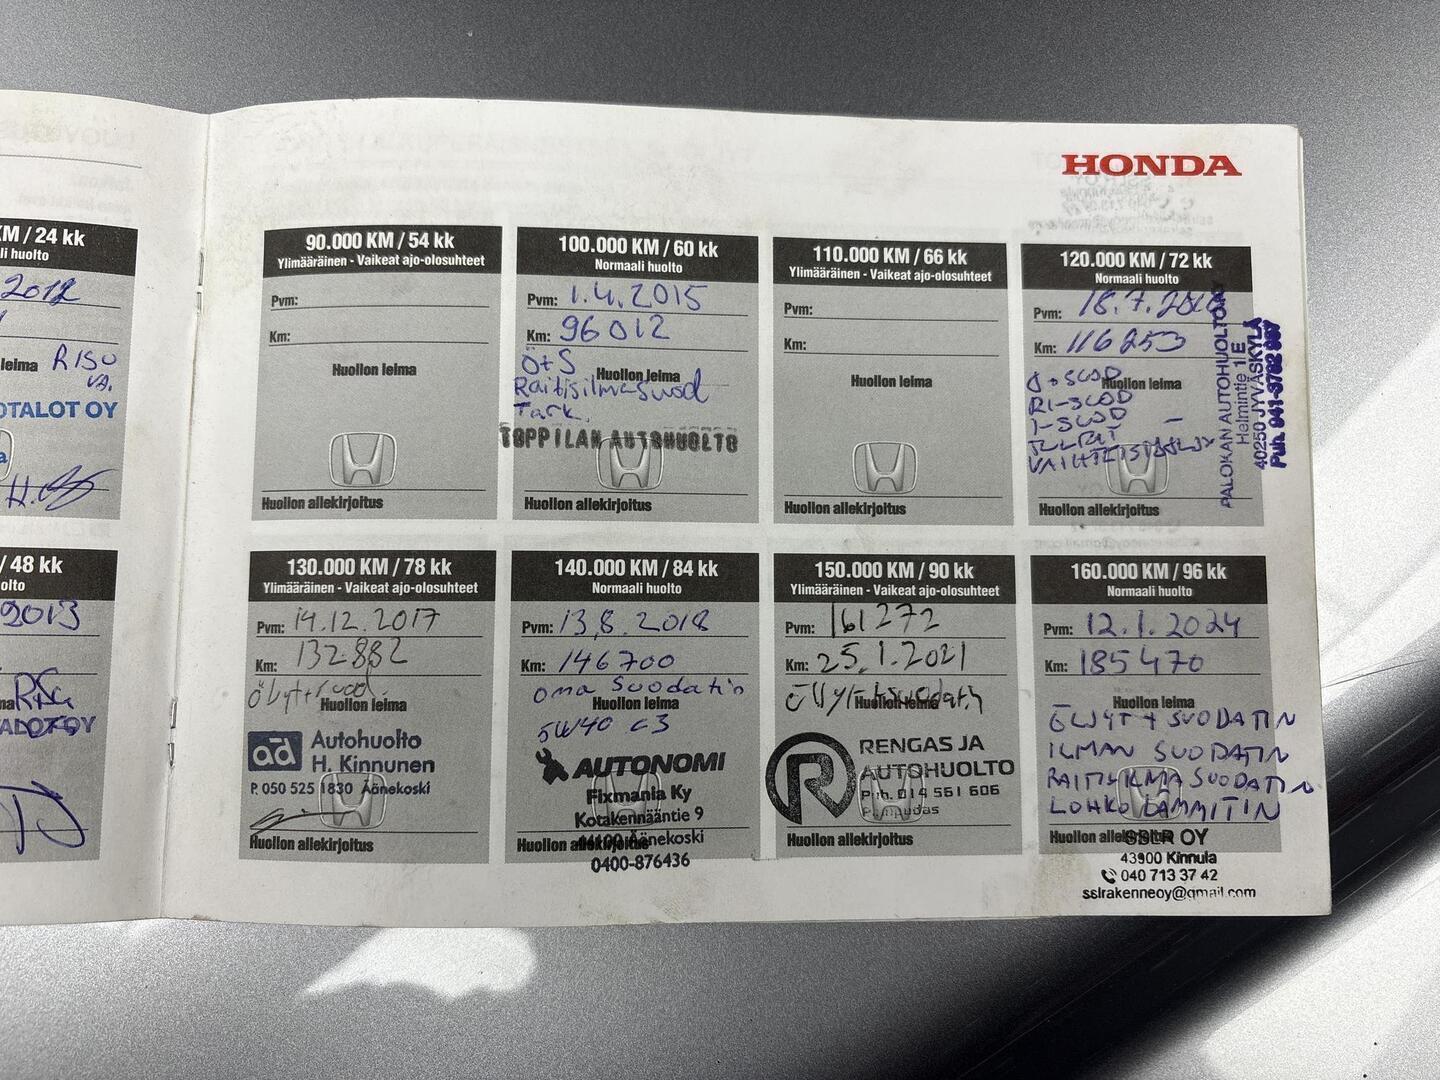 HONDA
KM / 24 kk
li huolto
2012
leima RISU
VA.
OTALOT OY
a
/ 48 kk
olto
2013
90.000 KM / 54 kk
Ylimääräinen - Vaikeat ajo-olosuhteet
Pvm:
Km:
Huollon leima
Huollon allekirjoitus
100.000 KM / 60 kk
Normaali huolto
Pvm: 1.4.2015
Km: 96012
Ö+S
Huollon leima
Raitisilmasuod
Tark.
TOPPILAN AUTOHUOLTO
Huollon allekirjoitus
110.000 KM / 66 kk
Ylimääräinen - Vaikeat ajo-olosuhteet
Pvm:
Km:
Huollon leima
Huollon allekirjoitus
120.000 KM / 72 kk
Normaali huolto
Pvm: 18.7.
Km: 116253
Ö+SUOD
Huollon leima
RI-SUOD
I-SUOD
Huollon allekirjoitus
PALOKAN AUTOHUOLTO
Helmintie 1 E
40250 JYVÄSKYLÄ
Puh.
130.000 KM / 78 kk
Ylimääräinen - Vaikeat ajo-olosuhteet
Pvm: 14.12.2017
Km: 132882
öljyt+suod.
Huollon leima
ad Autohuolto
H. Kinnunen
P. 050 525 1830 Äänekoski
Huollon allekirjoitus
140.000 KM / 84 kk
Normaali huolto
Pvm: 13.8.2018
Km: 146700
oma suodatin
Huollon leima
5W40 C3
AUTONOMI
Fixmania Ky
Kotakennääntie 9
44100 Äänekoski
Huollon allekirjoitus
0400-876436
150.000 KM / 90 kk
Ylimääräinen - Vaikeat ajo-olosuhteet
Pvm: 161272
Km: 25.1.2021
Öljyt+suodatin
Huollon leima
R RENGAS JA
AUTOHUOLTO
Puh. 014 561 606
Huollon allekirjoitus
160.000 KM / 96 kk
Normaali huolto
Pvm: 12.1.2024
Km: 185470
Huollon leima
ÖLJYT + SUODATIN
ILMAN SUODATIN
RAITISILMASUODATIN
LOHKOLÄMMITIN
Huollon allekirjoitus
SSLR OY
43900 Kinnula
040 713 37 42
sslrakenneoy@gmail.com